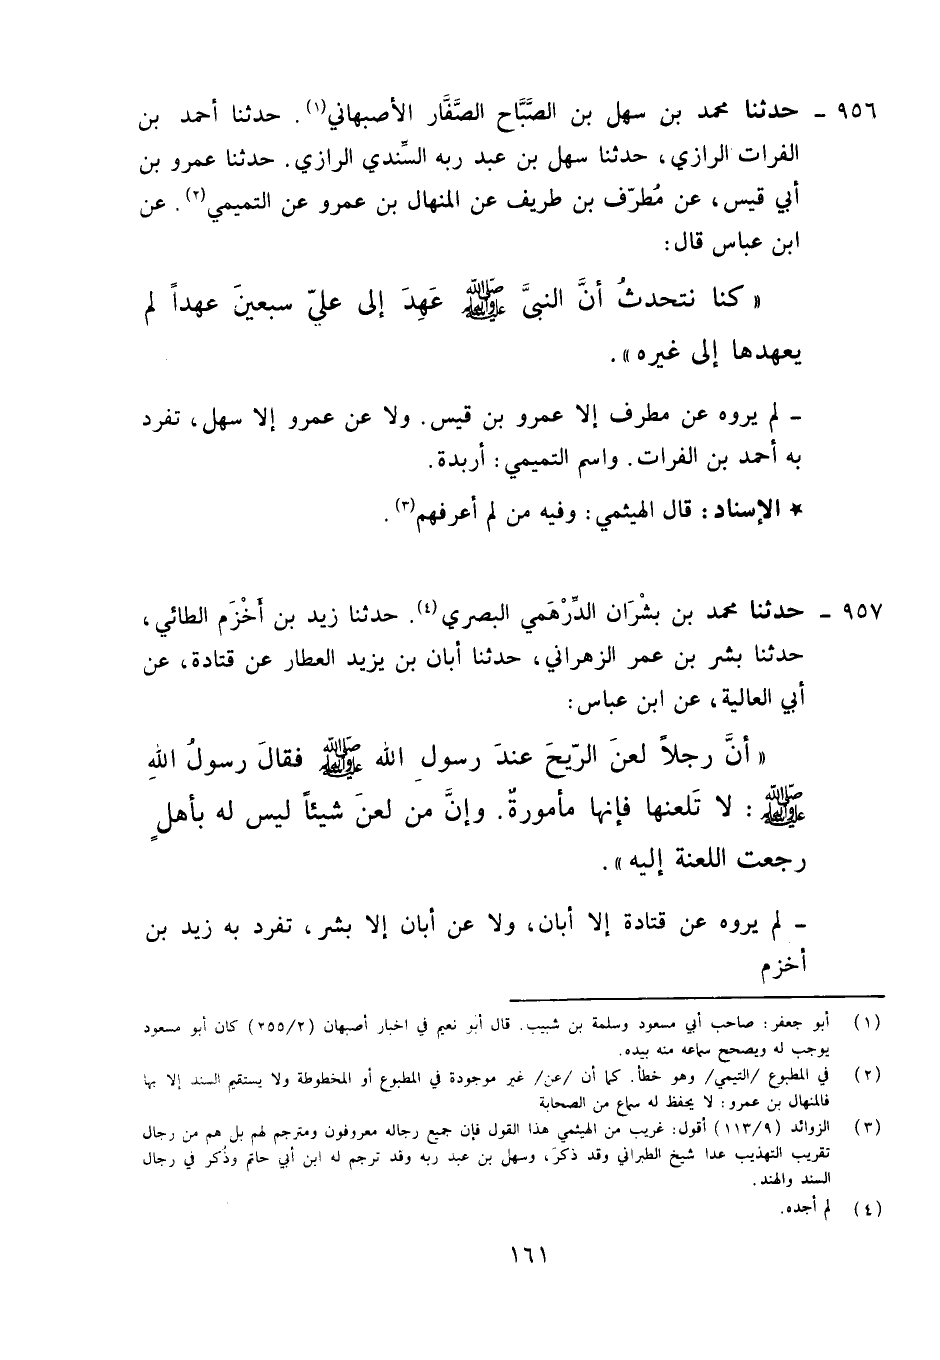 ٩٥٦ ـ حدثنا محمد بن سهل بن الصَّبَّاح الصَّفَّار الأصبهاني(١). حدثنا أحمد بن
الفرات الرازي، حدثنا سهل بن عبد ربه السِّندي الرازي. حدثنا عمرو بن
أبي قيس، عن مُطرّف بن طريف عن المنهال بن عمرو عن التميمي(٢). عن
ابن عباس قال:
« كنا نتحدثُ أنَّ النبيَّ ﷺ عَهِدَ إلى عليّ سبعينَ عهداً لم
يعهدها إلى غيره ».
ـ لم يروه عن مطرف إلا عمرو بن قيس. ولا عن عمرو إلا سهل، تفرد
به أحمد بن الفرات. واسم التميمي: أربدة.
★ الإسناد: قال الهيثمي: وفيه من لم أعرفهم(٣).
٩٥٧ ـ حدثنا محمد بن بشْرَان الدِّرْهَمي البصري(٤). حدثنا زيد بن أَخْزَم الطائي،
حدثنا بشر بن عمر الزهراني، حدثنا أبان بن يزيد العطار عن قتادة، عن
أبي العالية، عن ابن عباس:
« أنَّ رجلاً لعنَ الرّيحَ عندَ رسولِ الله ﷺ فقالَ رسولُ اللهِ
ﷺ: لا تَلعنها فإنها مأمورةٌ. وإنَّ من لعنَ شيئاً ليس له بأهلٍ
رجعت اللعنة إليه ».
ـ لم يروه عن قتادة إلا أبان، ولا عن أبان إلا بشر، تفرد به زيد بن
أخزم
(١) أبو جعفر: صاحب أبي مسعود وسلمة بن شبيب. قال أبو نعيم في اخبار أصبهان (٢٥٥/٢) كان أبو مسعود
يوجب له ويصحح سماعه منه بيده.
(٢) في المطبوع /التيمي/ وهو خطأ. كما أن /عن/ غير موجودة في المطبوع أو المخطوطة ولا يستقيم السند إلا بها
فالمنهال بن عمرو: لا يحفظ له سماع من الصحابة
(٣) الزوائد (١١٣/٩) أقول: غريب من الهيثمي هذا القول فإن جميع رجاله معروفون ومترجم لهم بل هم من رجال
تقريب التهذيب عدا شيخ الطبراني وقد ذكرَ، وسهل بن عبد ربه وقد ترجم له ابن أبي حاتم وذُكر في رجال
السند والهند.
(٤) لم أجده.
١٦١